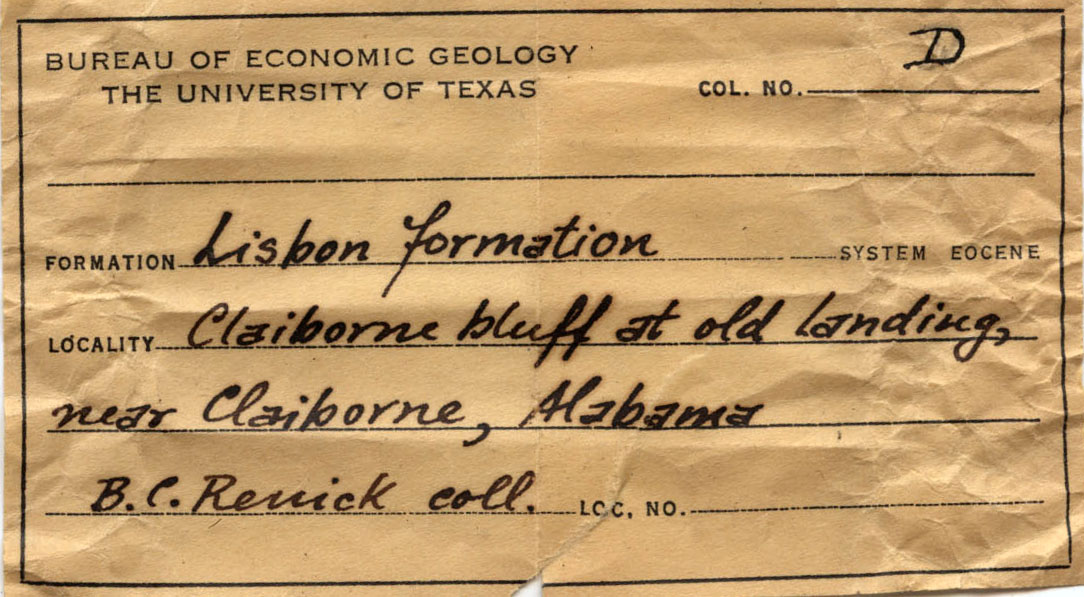 BUREAU OF ECONOMIC GEOLOGY
THE UNIVERSITY OF TEXAS
COL. NO. D
FORMATION Lisbon formation SYSTEM EOCENE
LOCALITY Claiborne bluff at old landing,
near Claiborne, Alabama
B.C. Renick coll. LOC. NO.